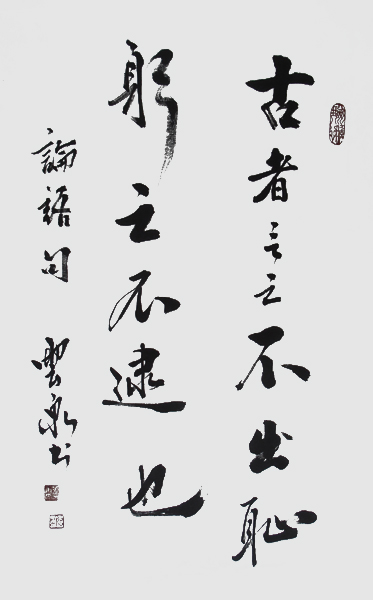 古者言之不出恥
躬之不逮也
論語句 書